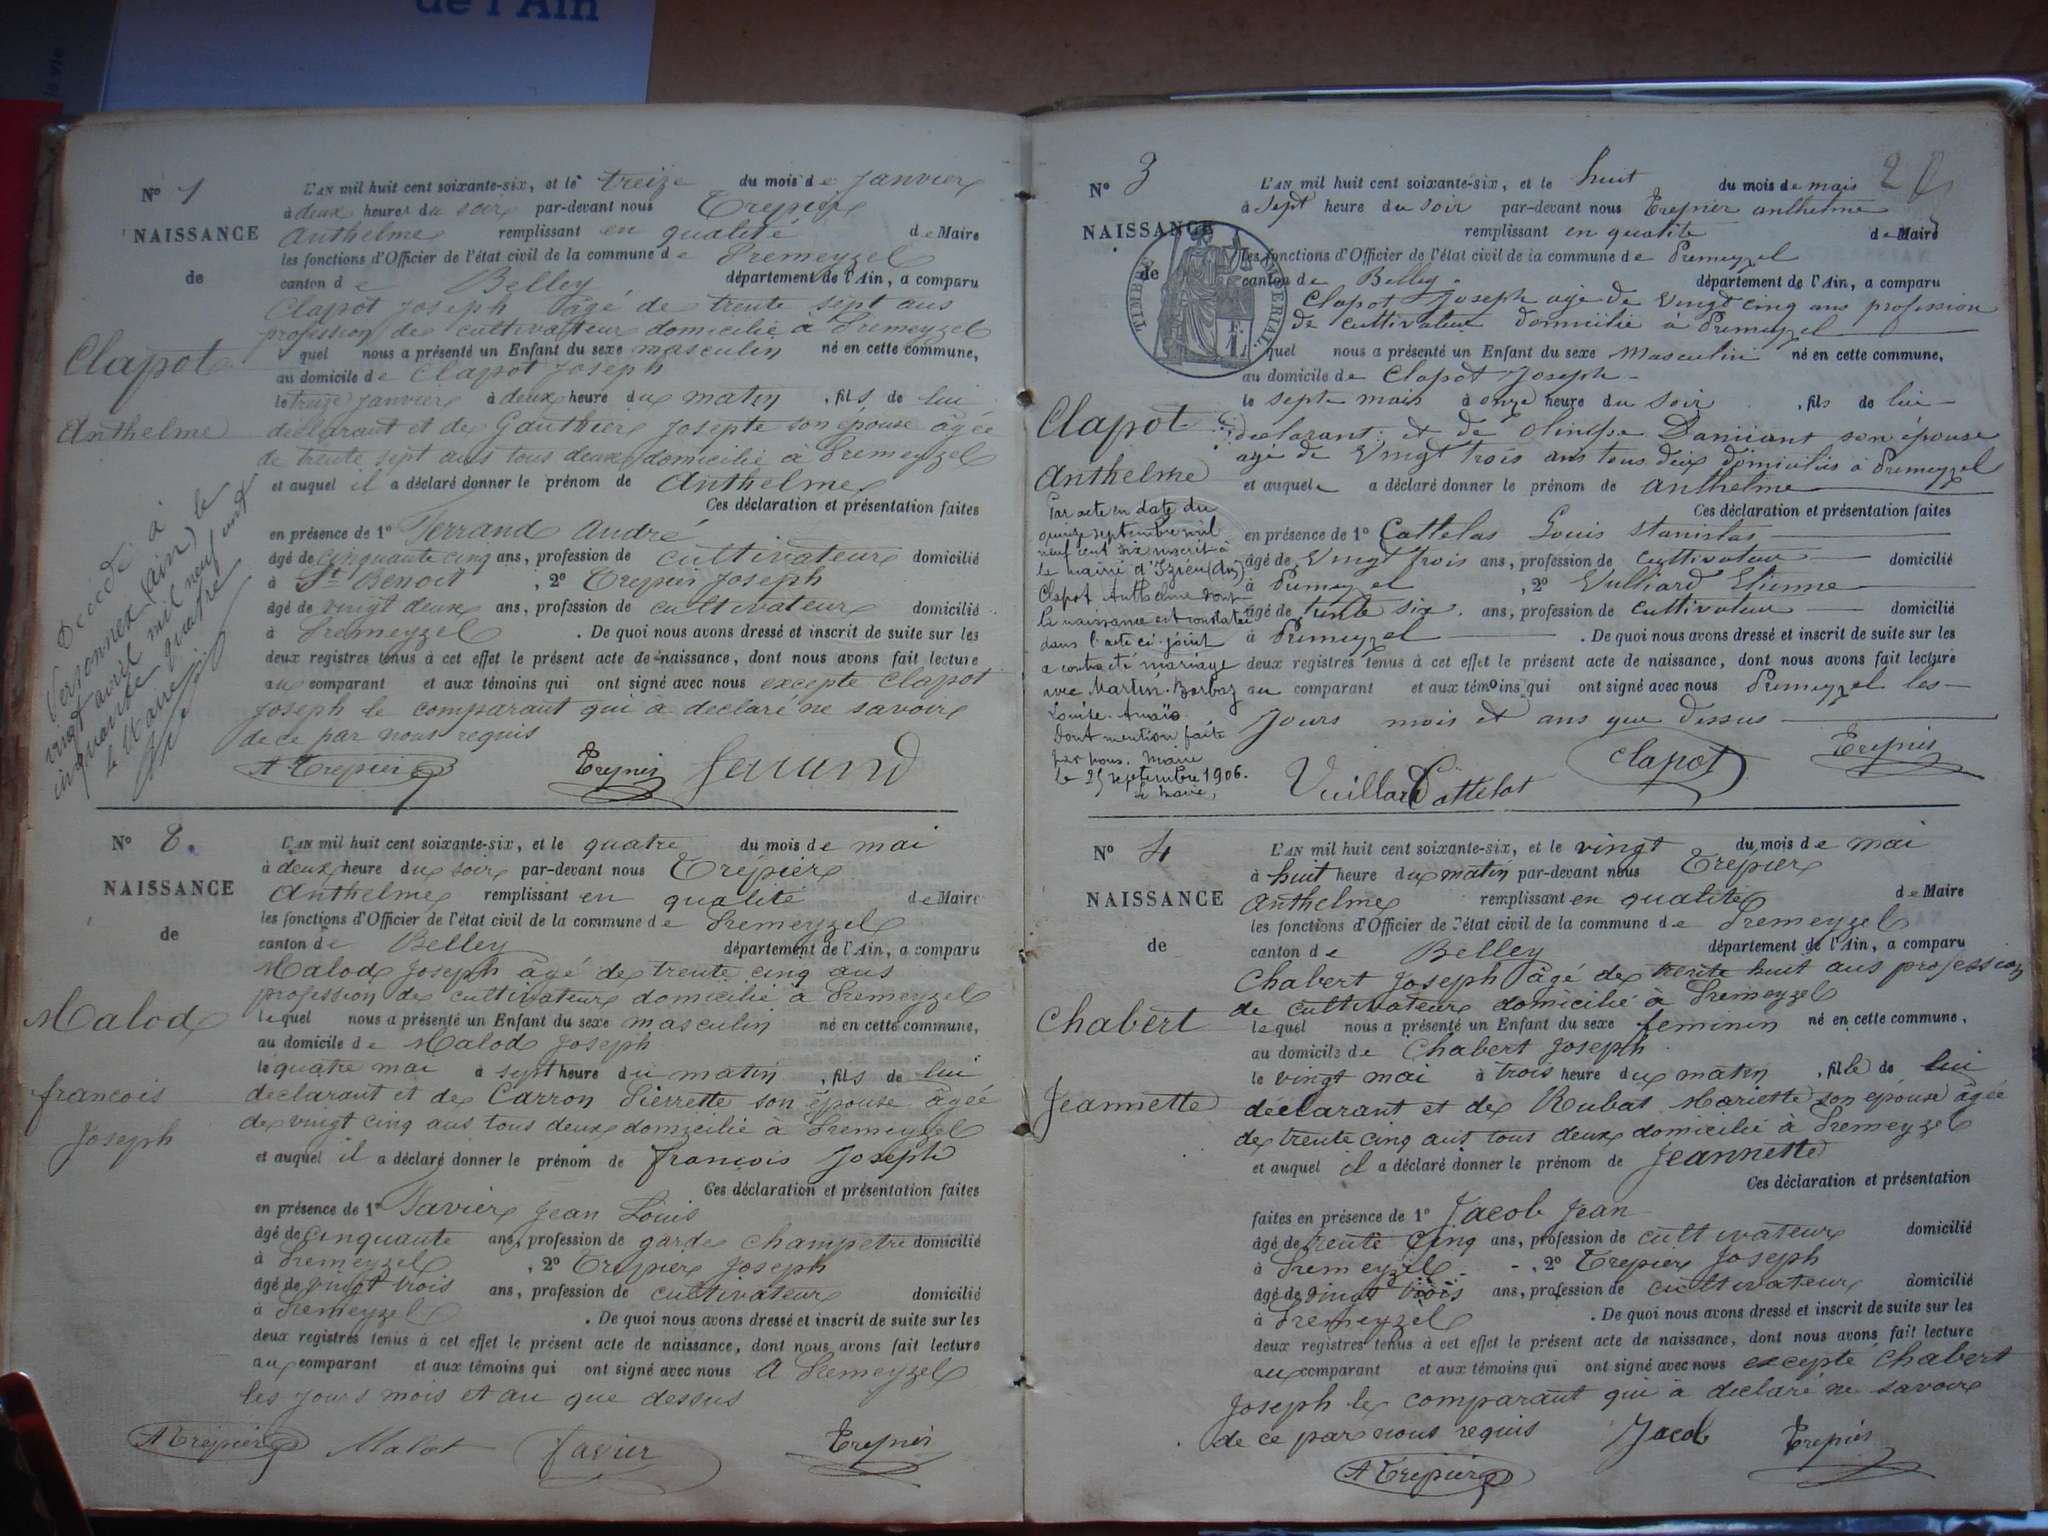 de l'Ain
N° 1
NAISSANCE
de
Clapot
Anthelme
L'AN mil huit cent soixante-six, et le treize du mois de janvier
à deux heures du soir par-devant nous Trepier
Anthelme remplissant en qualité de Maire
les fonctions d'Officier de l'état civil de la commune de Premeyzel
canton de Belley département de l'Ain, a comparu
Clapot Joseph âgé de trente sept ans
profession de cultivateur domicilié à Premeyzel
quel nous a présenté un Enfant du sexe masculin né en cette commune,
au domicile de Clapot Joseph
le treize janvier à deux heure du matin, fils de lui
declarant et de Gauthier Josepte son épouse âgée
de trente sept ans tous deux domicilié à Premeyzel
et auquel il a déclaré donner le prénom de Anthelme
Ces déclaration et présentation faites
en présence de 1° Ferrand André
âgé de cinquante cinq ans, profession de cultivateur domicilié
à St Benoit, 2° Trepier Joseph
âgé de vingt deux ans, profession de cultivateur domicilié
à Premeyzel. De quoi nous avons dressé et inscrit de suite sur les
deux registres tenus à cet effet le présent acte de naissance, dont nous avons fait lecture
au comparant et aux témoins qui ont signé avec nous excepte Clapot
Joseph le comparant qui a declaré ne savoir
de ce par nous requis
A Trepier Trepier Ferrand
Décédé à
(ain) le
vingt avril mil neuf cent
cinquante quatre
le Maire
N° 2.
NAISSANCE
de
Malod
francois
Joseph
L'AN mil huit cent soixante-six, et le quatre du mois de mai
à deux heure du soir par-devant nous Trépier
Anthelme remplissant en qualité de Maire
les fonctions d'Officier de l'état civil de la commune de Premeyzel
canton de Belley département de l'Ain, a comparu
Malod Joseph âgé de trente cinq ans
profession de cultivateur domicilié à Premeyzel
lequel nous a présenté un Enfant du sexe masculin né en cette commune,
au domicile de Malod Joseph
le quatre mai à sept heure du matin, fils de lui
declarant et de Carron Pierrette son épouse âgée
de vingt cinq ans tous deux domicilié à Premeyzel
et auquel il a déclaré donner le prénom de francois Joseph
Ces déclaration et présentation faites
en présence de 1° Javier Jean Louis
âgé de cinquante ans, profession de garde champetre domicilié
à Premeyzel, 2° Trepier Joseph
âgé de vingt trois ans, profession de cultivateur domicilié
à Premeyzel. De quoi nous avons dressé et inscrit de suite sur les
deux registres tenus à cet effet le présent acte de naissance, dont nous avons fait lecture
au comparant et aux témoins qui ont signé avec nous A Premeyzel
les jours mois et an que dessus
A Trepier Malot Javier Trepier
N° 3
NAISSANCE
de
TIMBRE IMPERIAL
Clapot
Anthelme
Par acte en date du
quinze septembre mil
neuf cent six inscrit à
la mairie d'Izieu (Ain)
Clapot Anthelme dont
la naissance est constatée
dans l'acte ci-joint
a contracté mariage
avec Martin-Barbaz
Louise-Anaïs
Dont mention faite
par nous, Maire
le 25 septembre 1906.
Le Maire,
2
L'AN mil huit cent soixante-six, et le huit du mois de mais
à sept heure du soir par-devant nous Trepier anthelme
remplissant en qualite de Maire
les fonctions d'Officier de l'état civil de la commune de Premeyzel
canton de Belley. département de l'Ain, a comparu
Clapot Joseph age de vingt cinq ans profession
de cultivateur domicilié à Premeyzel
quel nous a présenté un Enfant du sexe Masculin né en cette commune,
au domicile de Clapot Joseph
le sept mais à onze heure du soir, fils de lui
declarant et de Olimpe son épouse
age de vingt trois ans tous deux domiciliés à Premeyzel
et auquel a déclaré donner le prénom de anthelme
Ces déclaration et présentation faites
en présence de 1° Cattelas Louis Stanislas
âgé de vingt trois ans, profession de cultivateur domicilié
à Premeyzel, 2° Vulliard Etienne
âgé de trente six. ans, profession de cultivateur domicilié
à Premeyzel. De quoi nous avons dressé et inscrit de suite sur les
deux registres tenus à cet effet le présent acte de naissance, dont nous avons fait lecture
au comparant et aux témoins qui ont signé avec nous Premeyzel les
Jours mois et ans que dessus
Vuillard Cattelat Clapot Trepier
N° 4
NAISSANCE
de
Chabert
Jeannette
L'AN mil huit cent soixante-six, et le vingt du mois de mai
à huit heure du matin par-devant nous Trépier
Anthelme remplissant en qualité de Maire
les fonctions d'Officier de l'état civil de la commune de Premeyzel
canton de Belley département de l'Ain, a comparu
Chabert Joseph âgé de trente huit ans profession
de cultivateur domicilié à Premeyzel
lequel nous a présenté un Enfant du sexe feminin né en cette commune,
au domicile de Chabert Joseph
le vingt mai à trois heure du matin, fille de lui
déclarant et de Rubat Mariette son épouse âgée
de trente cinq ans tous deux domicilié à Premeyzel
et auquel il a déclaré donner le prénom de Jeannette
Ces déclaration et présentation
faites en présence de 1° Jacob Jean
âgé de trente cinq ans, profession de cultivateur domicilié
à Premeyzel, 2° Trepier Joseph
âgé de vingt trois ans, profession de cultivateur domicilié
à Premeyzel. De quoi nous avons dressé et inscrit de suite sur les
deux registres tenus à cet effet le présent acte de naissance, dont nous avons fait lecture
au comparant et aux témoins qui ont signé avec nous excepté Chabert
Joseph le comparant qui à declaré ne savoir
de ce par nous requis Jacob Trepier
A Trepier